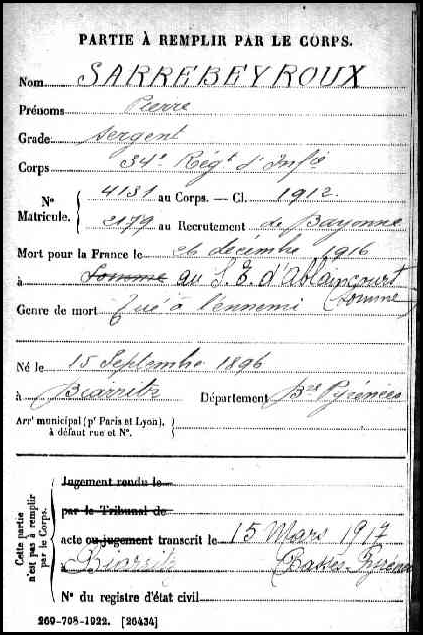 PARTIE À REMPLIR PAR LE CORPS.
Nom SARREBEYROUX
Prénoms Pierre
Grade Sergent
Corps 34e Régt d'Infie
N° Matricule. { 4131 au Corps. — Cl. 1912
2179 au Recrutement de Bayonne
Mort pour la France le 26 décembre 1916
à Somme au S. E. d'Ablaincourt
(Somme)
Genre de mort Tué à l'ennemi
Né le 15 Septembre 1896
à Biarritz Département Bses Pyrénées
Arrt municipal (pr Paris et Lyon), à défaut rue et N°. }
Cette partie n'est pas à remplir par le Corps.
Jugement rendu le
par le Tribunal de
acte ou jugement transcrit le 15 Mars 1917
à Biarritz Basses-Pyrénées
N° du registre d'état civil
269-708-1922. [26434]